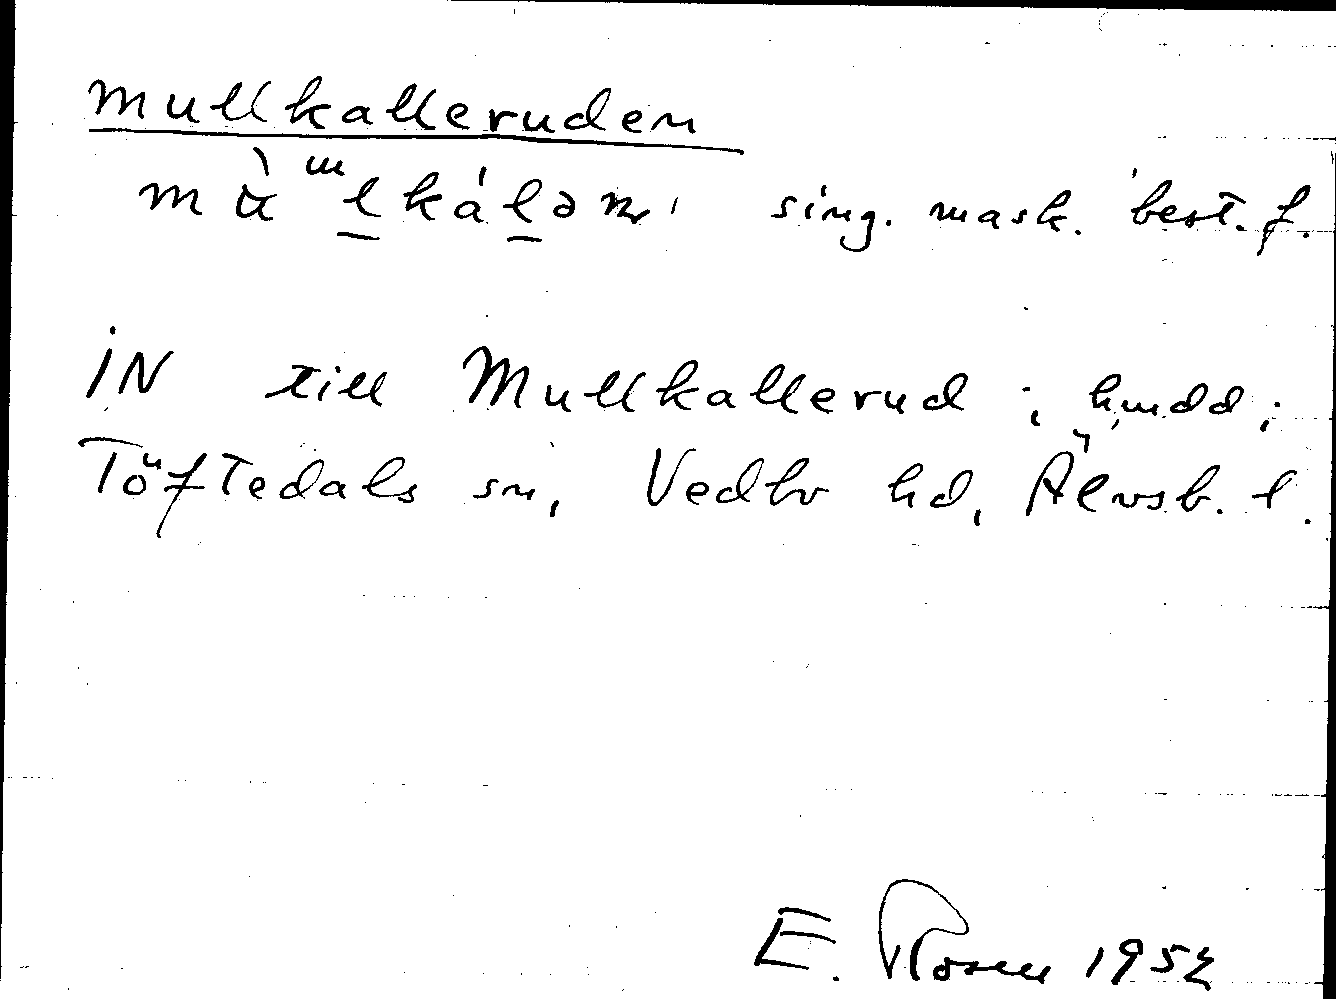 mullkalleruden
sing. mask. best. f.
IN till Mullkallerud, hmdd,
Töftedals sn, Vedbo hd, Älvsb. l.
E. Rosen 1952